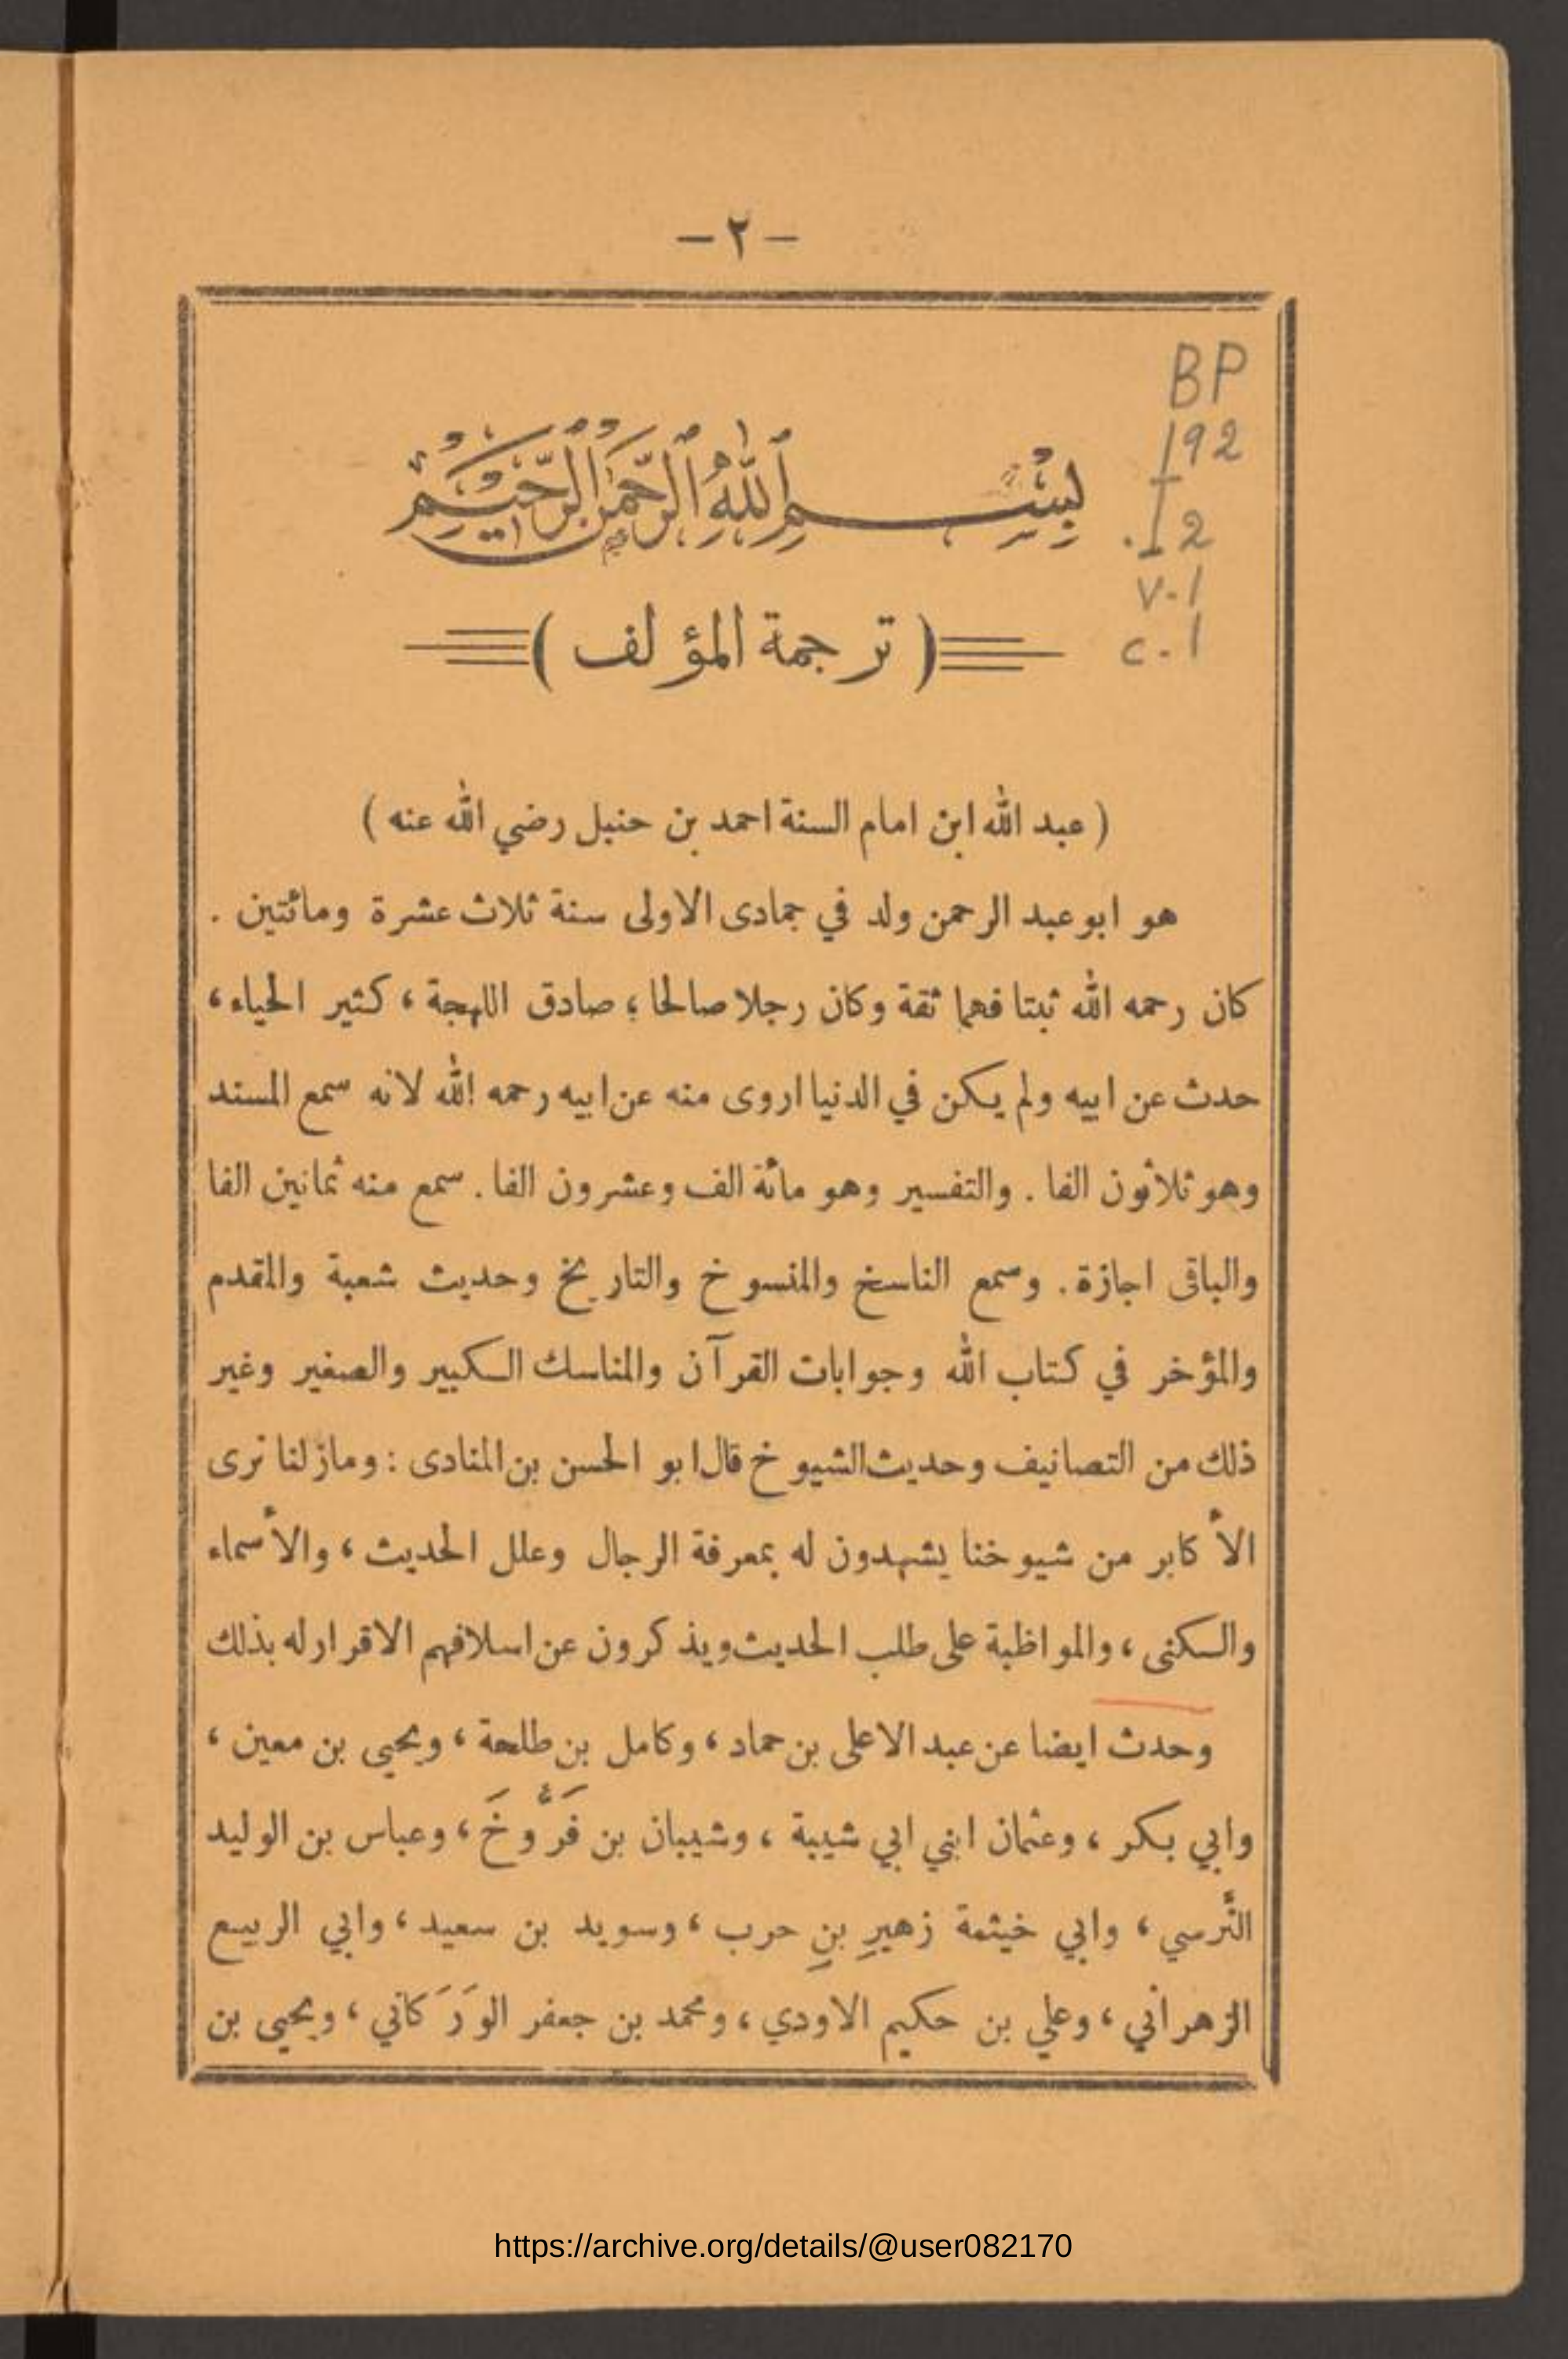 — ٢ —
BP
192
.I2
v.1
c.1
بِسْمِ اللهِ الرَّحْمَنِ الرَّحِيمِ
( ترجمة المؤلف )
( عبد الله ابن امام السنة احمد بن حنبل رضي الله عنه )
هو ابو عبد الرحمن ولد في جمادى الاولى سنة ثلاث عشرة ومائتين .
كان رحمه الله ثبتا فهما ثقة وكان رجلا صالحا ؛ صادق اللهجة ، كثير الحياء ،
حدث عن ابيه ولم يكن في الدنيا اروى منه عن ابيه رحمه الله لانه سمع المسند
وهو ثلاثون الفا . والتفسير وهو مائة الف وعشرون الفا . سمع منه ثمانين الفا
والباقى اجازة . وسمع الناسخ والمنسوخ والتاريخ وحديث شعبة والمقدم
والمؤخر في كتاب الله وجوابات القرآن والمناسك الكبير والصغير وغير
ذلك من التصانيف وحديث الشيوخ قال ابو الحسن بن المنادى : ومازلنا نرى
الأكابر من شيوخنا يشهدون له بمعرفة الرجال وعلل الحديث ، والأسماء
والكنى ، والمواظبة على طلب الحديث ويذكرون عن اسلافهم الاقرار له بذلك
وحدث ايضا عن عبد الاعلى بن حماد ، وكامل بن طلحة ، ويحيى بن معين ،
وابي بكر ، وعثمان ابني ابي شيبة ، وشيبان بن فَرُّوخَ ، وعباس بن الوليد
النَّرسي ، وابي خيثمة زهيرِ بنِ حرب ، وسويد بن سعيد ، وابي الربيع
الزهراني ، وعلي بن حكيم الاودي ، ومحمد بن جعفر الوَرَكاني ، ويحيى بن
https://archive.org/details/@user082170